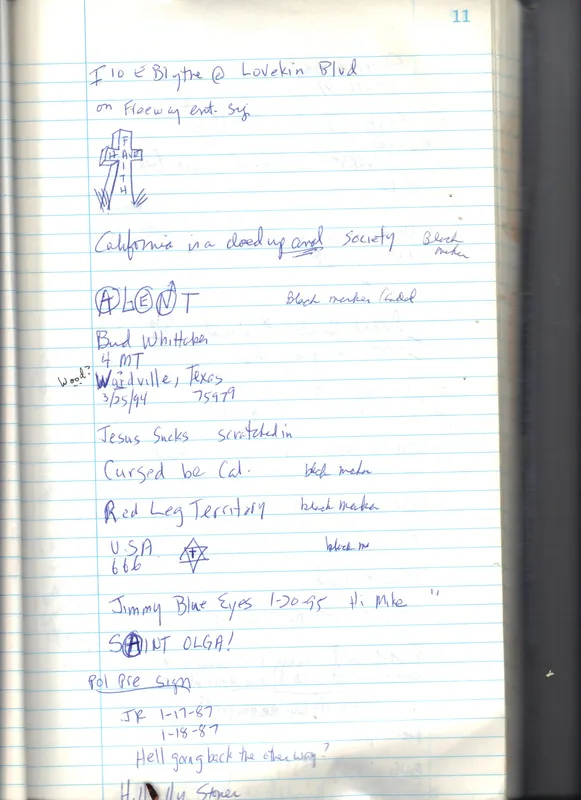 11
I 10 E Blythe @ Lovekin Blvd
on Freeway ent. Sig.
F
HAVE
I
T
H
California is a closed up and Society Black marker
ALENT Black marker faded
Bud Whittaker
4 MT
Wood? Wardville, Texas
3/25/94 75979
Jesus Sucks scratched in
Cursed be Cal. black marker
Red Leg Territory black marker
U.S.A
666 black
Jimmy Blue Eyes 1-20-95 Hi Mike "
SAINT OLGA!
sign
JR 1-17-87
1-18-87
Hell going back the other way?
Stoner